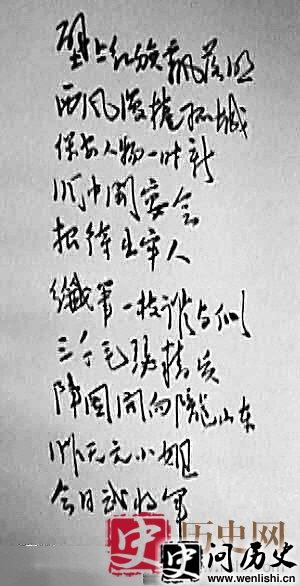 壁上红旗飘落照
西风漫卷孤城
保安人物一时新
洞中開宴会
招待出牢人
纖笔一枝谁与似
三千毛瑟精兵
阵图開向陇山东
昨天文小姐
今日武将军
史 历史网
史 问历史
www.wenlishi.cn